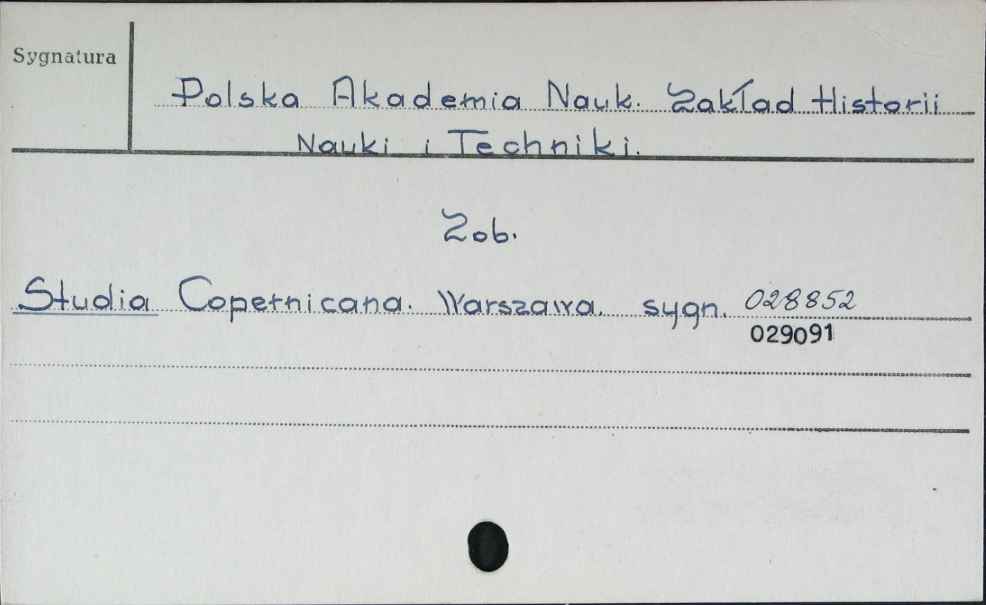 Sygnatura
Polska Akademia Nauk. Zakład Historii
Nauki i Techniki.
Zob.
Studia Copernicana. Warszawa. sygn. 028852
029091